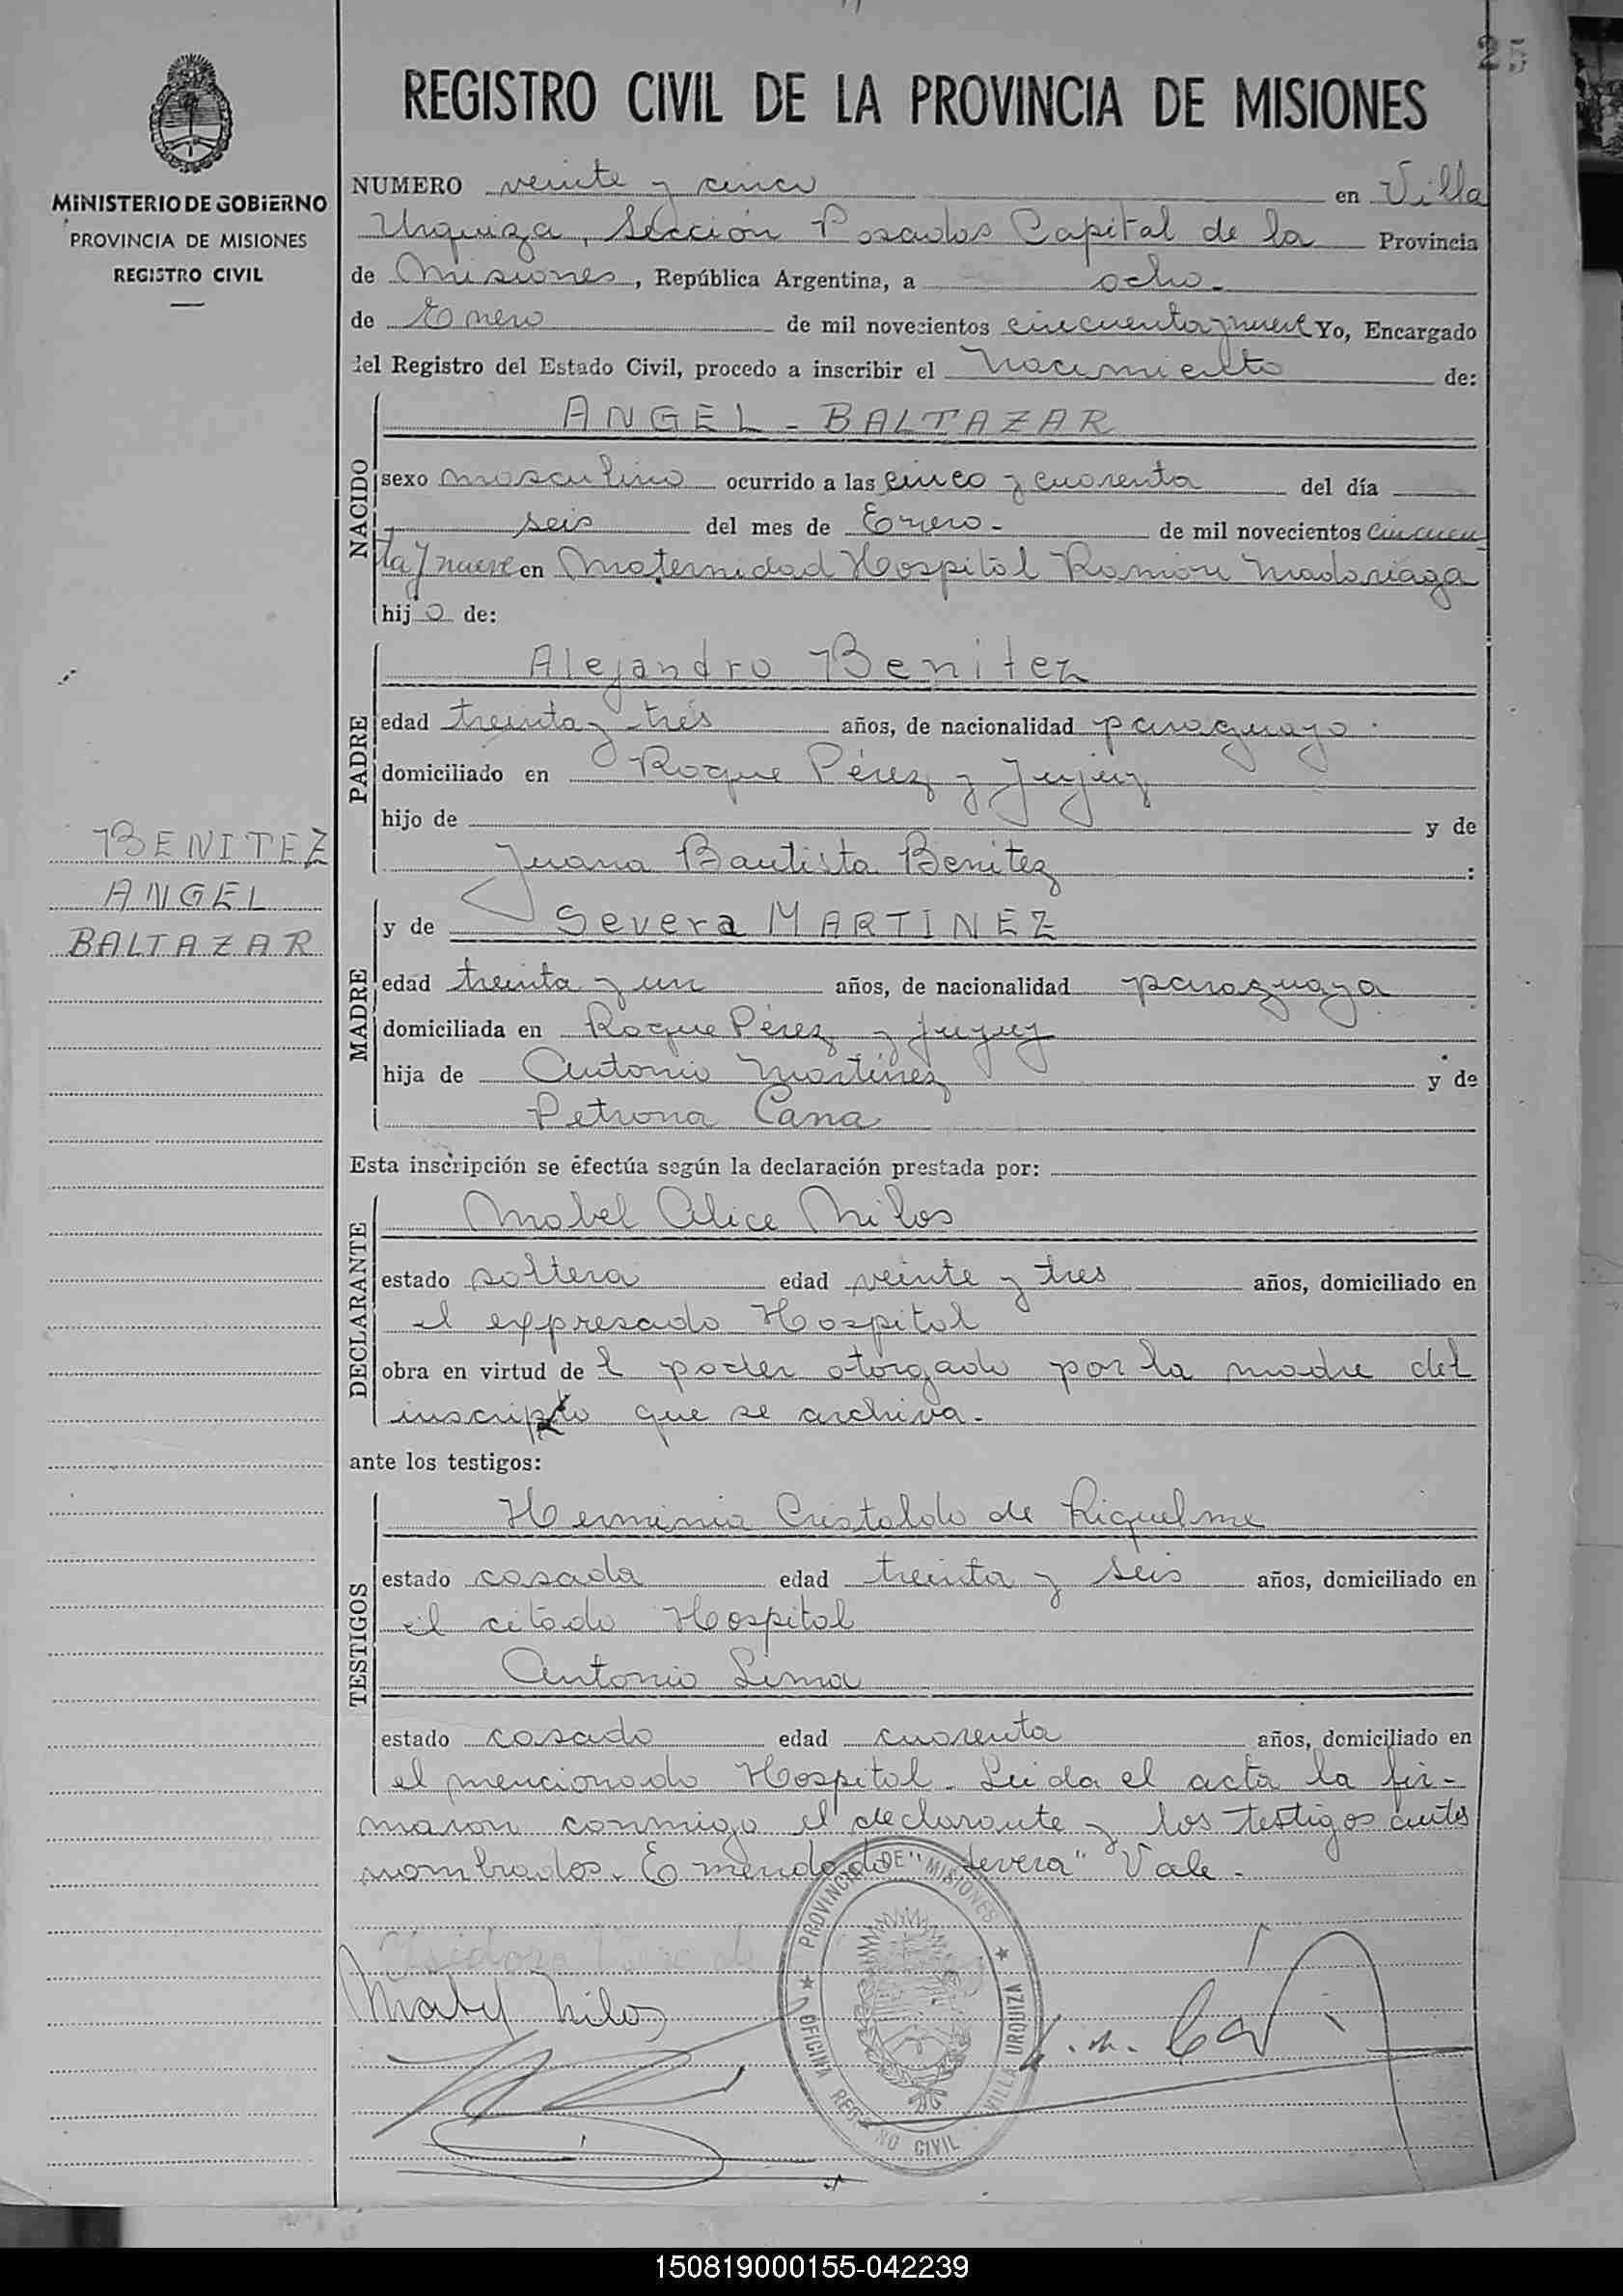 25
REGISTRO CIVIL DE LA PROVINCIA DE MISIONES
MINISTERIO DE GOBIERNO
PROVINCIA DE MISIONES
REGISTRO CIVIL
NUMERO veinte y cinco en Villa
Urquiza, Sección Posadas Capital de la Provincia
de Misiones, República Argentina, a ocho.
de Enero de mil novecientos cincuenta y nueve Yo, Encargado
del Registro del Estado Civil, procedo a inscribir el Nacimiento de:
NACIDO
ANGEL - BALTAZAR
sexo masculino ocurrido a las cinco y cuarenta del día
seis del mes de Enero - de mil novecientos cincuen
ta y nueve en Maternidad Hospital Ramón Madariaga
hijo de:
PADRE
Alejandro Benitez
edad treinta y trés años, de nacionalidad paraguayo.
domiciliado en Roque Pérez y Jujuy
hijo de y de
Juana Bautista Benitez :
BENITEZ
ANGEL
BALTAZAR
MADRE
y de Severa MARTINEZ
edad treinta y un años, de nacionalidad paraguaya
domiciliada en Roque Pérez y Jujuy
hija de Antonio Martinez y de
Petrona Cana
Esta inscripción se efectúa según la declaración prestada por:
DECLARANTE
Mabel Alice Milos
estado soltera edad veinte y tres años, domiciliado en
el expresado Hospital
obra en virtud de l poder otorgado por la madre del
inscripto que se archiva.
ante los testigos:
TESTIGOS
Herminia Cristaldo de Riquelme
estado casada edad treinta y seis años, domiciliado en
el citado Hospital
Antonio Lima
estado casado edad cuarenta años, domiciliado en
el mencionado Hospital. Leida el acta la fir-
maron conmigo el declarante y los testigos antes
nombrados. Emendado "Severa" Vale.
PROVINCIA DE MISIONES
OFICINA REGISTRO CIVIL VILLA URQUIZA
Maby Milos
150819000155-042239